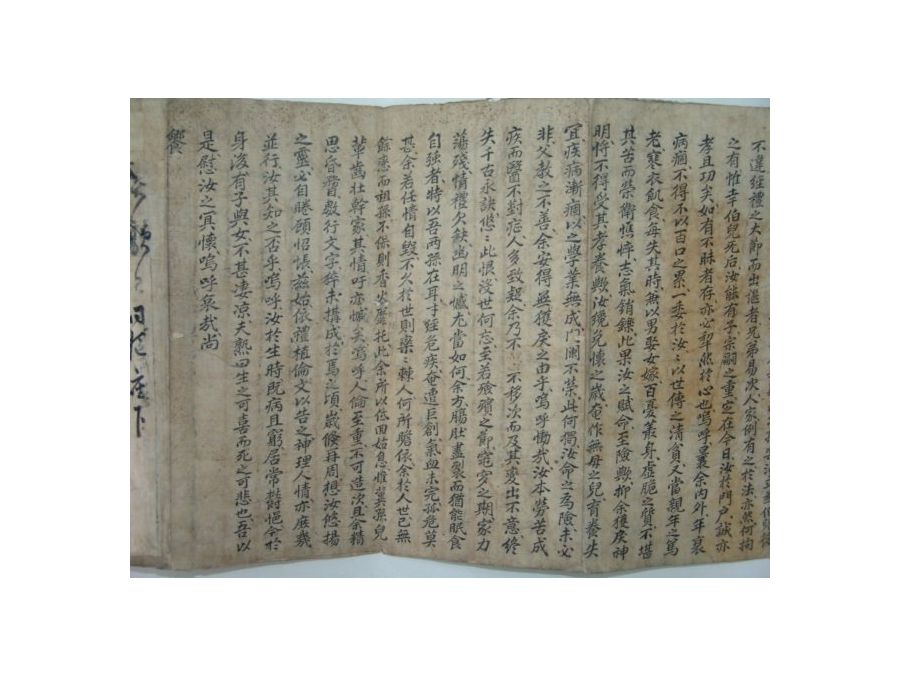 不違經禮之大節而出邁者兄弟易次人家例有之於法亦然何拘
之有惟千伯兒死后汝能有子宗嗣之重定在今日汝於門戶誠亦
孝且功矣如有不昧者存亦必犁然於心也嗚呼曩余內外年衰
病痼不得不以百口之累一委於汝汝以世傳之清貧又當親年之篤
老寒衣飢食每失其時無以男娶女嫁百憂叢身虛脆之質不堪
其苦而榮衛憔悴志氣銷鑠此果汝之賦命至險歟抑余獲戾神
明將不得受其孝養歟汝纔免懷之歲奄作無母之兒育養失
宜疾病漸痼以之學業無成門闌不榮此何獨汝命之爲險未必
非父教之不善余安得無獲戾之由乎嗚呼慟哉汝本勞苦成
疾而醫不對症人多致疑余乃不 不移次而及其變出不意終
失千古永訣悠悠此恨沒世何忘至若殯殮之節窀穸之期家力
蕩殘情禮欠缺幽明之憾尤當如何余方腸肚盡裂而猶能眠食
自强者特以吾兩孫在耳才經危疾奄遭巨創氣血未完孤危莫
甚余若任情自毀不久於世則欒欒棘人何所膽依余於人世已無
餘悉而祖孫不保則香火靡托此余所以低回姑息惟冀孫兒
輩齒壯幹家其情吁亦慽矣嗚呼人倫至重不可造次且余精
思昏瞀數行文字猝未搆成於焉之頃歲倏再周想汝悠揚
之靈必自睠顧怊悵茲始依禮植倫文以告之神理人情亦庶幾
並行汝其知之否乎嗚呼汝於生時旣病且窮居常鬱悒今於
身後有子與女不甚凄凉夫孰曰生之可喜而死之可悲也吾以
是慰汝之冥懷嗚呼哀哉尚
饗